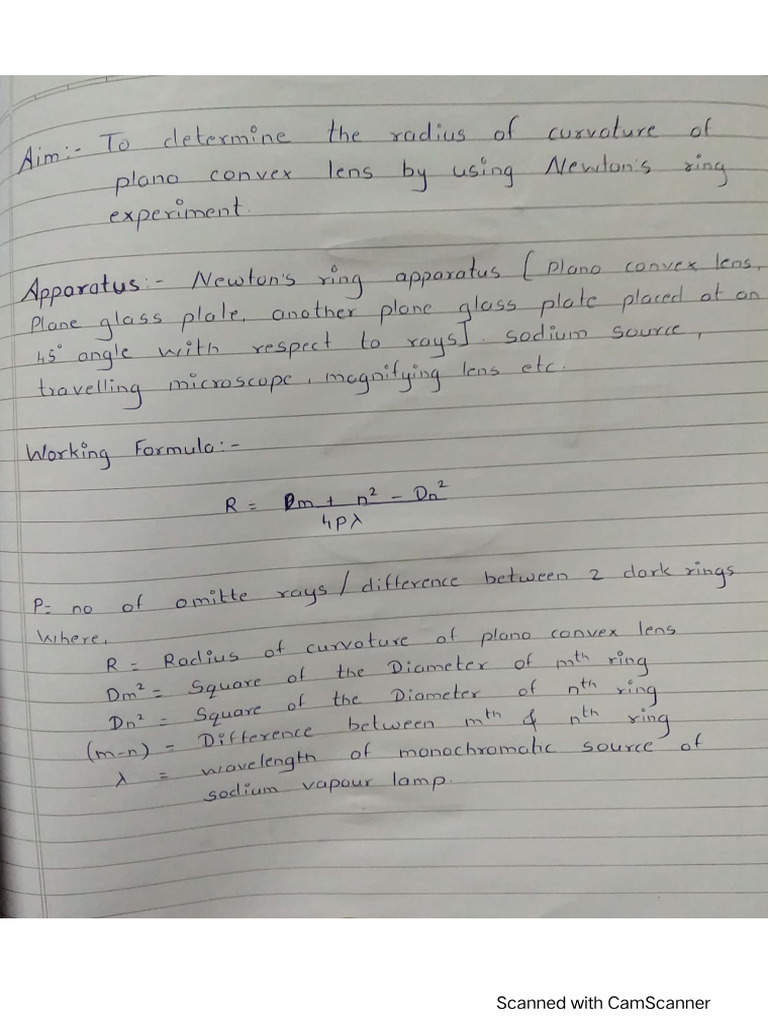 Aim:- To determine the radius of curvature of
plano convex lens by using Newton's ring
experiment.
Apparatus:- Newton's ring apparatus [Plano convex lens,
Plane glass plate, another plane glass plate placed at an
45° angle with respect to rays]. sodium source,
travelling microscope, magnifying lens etc.
Working Formula:-
R = Dm + n² - Dn²
4Pλ
P= no of omitte rays / difference between 2 dark rings
Where,
R = Radius of curvature of plano convex lens
Dm² = Square of the Diameter of mth ring
Dn² = Square of the Diameter of nth ring
(m-n) = Difference between mth & nth ring
λ = wavelength of monochromatic source of
sodium vapour lamp.
Scanned with CamScanner